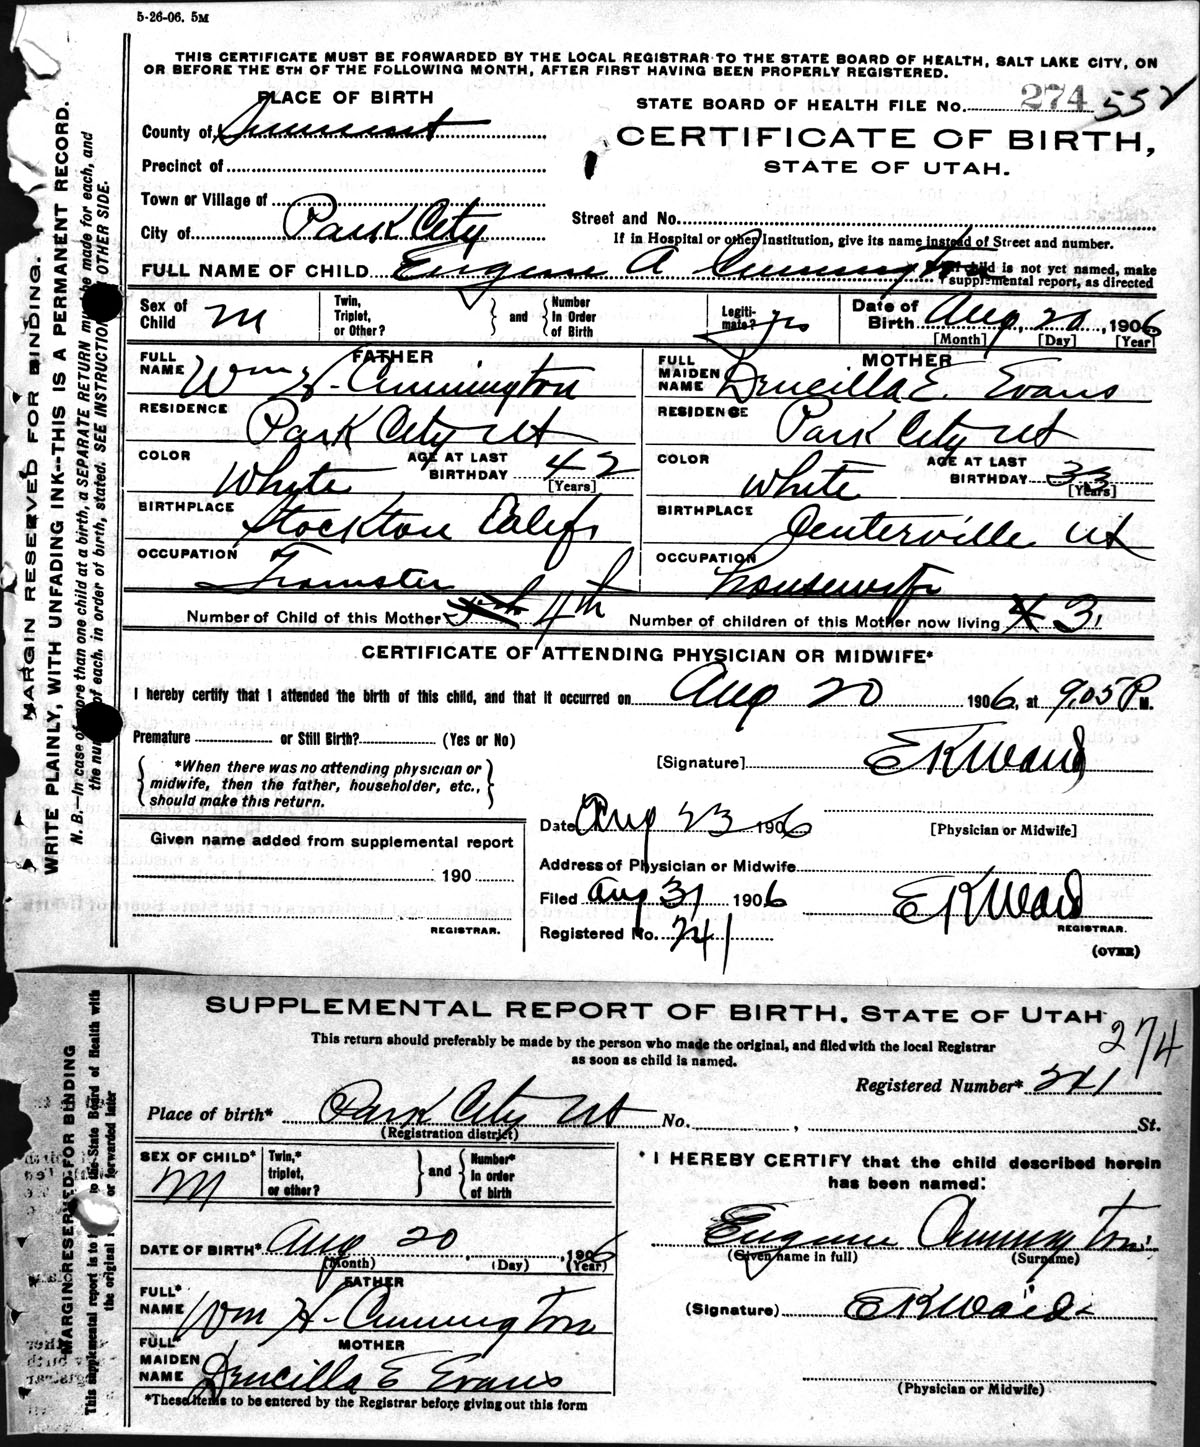 5-26-06. 5M
THIS CERTIFICATE MUST BE FORWARDED BY THE LOCAL REGISTRAR TO THE STATE BOARD OF HEALTH, SALT LAKE CITY, ON
OR BEFORE THE 5TH OF THE FOLLOWING MONTH, AFTER FIRST HAVING BEEN PROPERLY REGISTERED.
MARGIN RESERVED FOR BINDING.
WRITE PLAINLY, WITH UNFADING INK--THIS IS A PERMANENT RECORD.
N. B.—In case of more than one child at a birth, a SEPARATE RETURN must be made for each, and
the number of each, in order of birth, stated. SEE INSTRUCTIONS OTHER SIDE.
PLACE OF BIRTH
STATE BOARD OF HEALTH FILE No. 274 552
County of Summit
CERTIFICATE OF BIRTH,
STATE OF UTAH.
Precinct of
Town or Village of
Street and No.
City of Park City
If in Hospital or other Institution, give its name instead of Street and number.
FULL NAME OF CHILD Eugene A Cunnington
If child is not yet named, make
supplemental report, as directed
Sex of Child M
Twin, Triplet, or Other? and Number In Order of Birth
Legitimate? yes
Date of Birth Aug, 20, 1906
[Month] [Day] [Year]
FATHER
FULL NAME Wm H. Cunnington
RESIDENCE Park City Ut
COLOR White AGE AT LAST BIRTHDAY 42
[Years]
BIRTHPLACE Stockton Calif
OCCUPATION Teamster
MOTHER
FULL MAIDEN NAME Drucilla E. Evans
RESIDENCE Park City Ut
COLOR White AGE AT LAST BIRTHDAY 33
[Years]
BIRTHPLACE Centerville Ut
OCCUPATION Housewife
Number of Child of this Mother 4th Number of children of this Mother now living 4 3
CERTIFICATE OF ATTENDING PHYSICIAN OR MIDWIFE*
I hereby certify that I attended the birth of this child, and that it occurred on Aug 20 1906, at 9,05 P M.
Premature or Still Birth? (Yes or No)
*When there was no attending physician or
midwife, then the father, householder, etc.,
should make this return.
[Signature] EKWard
Date Aug 23 1906
[Physician or Midwife]
Given name added from supplemental report
190
REGISTRAR.
Address of Physician or Midwife
Filed Aug 31 1906 EKWard
REGISTRAR.
Registered No. 241
(OVER)
MARGIN RESERVED FOR BINDING
This supplemental report is to the State Board of Health with
the original or forwarded later
SUPPLEMENTAL REPORT OF BIRTH, STATE OF UTAH
274
This return should preferably be made by the person who made the original, and filed with the local Registrar
as soon as child is named.
Registered Number* 241
Place of birth* Park City Ut No. , St.
(Registration district)
SEX OF CHILD* M
Twin,* triplet, or other? and Number* In order of birth
* I HEREBY CERTIFY that the child described herein
has been named:
Eugene Cunnington
(Given name in full) (Surname)
DATE OF BIRTH* Aug 20, 1906
(Month) (Day) (Year)
FATHER
FULL* NAME Wm H. Cunnington
(Signature) EKWard
MOTHER
FULL* MAIDEN NAME Drucilla E Evans
(Physician or Midwife)
*These items to be entered by the Registrar before giving out this form